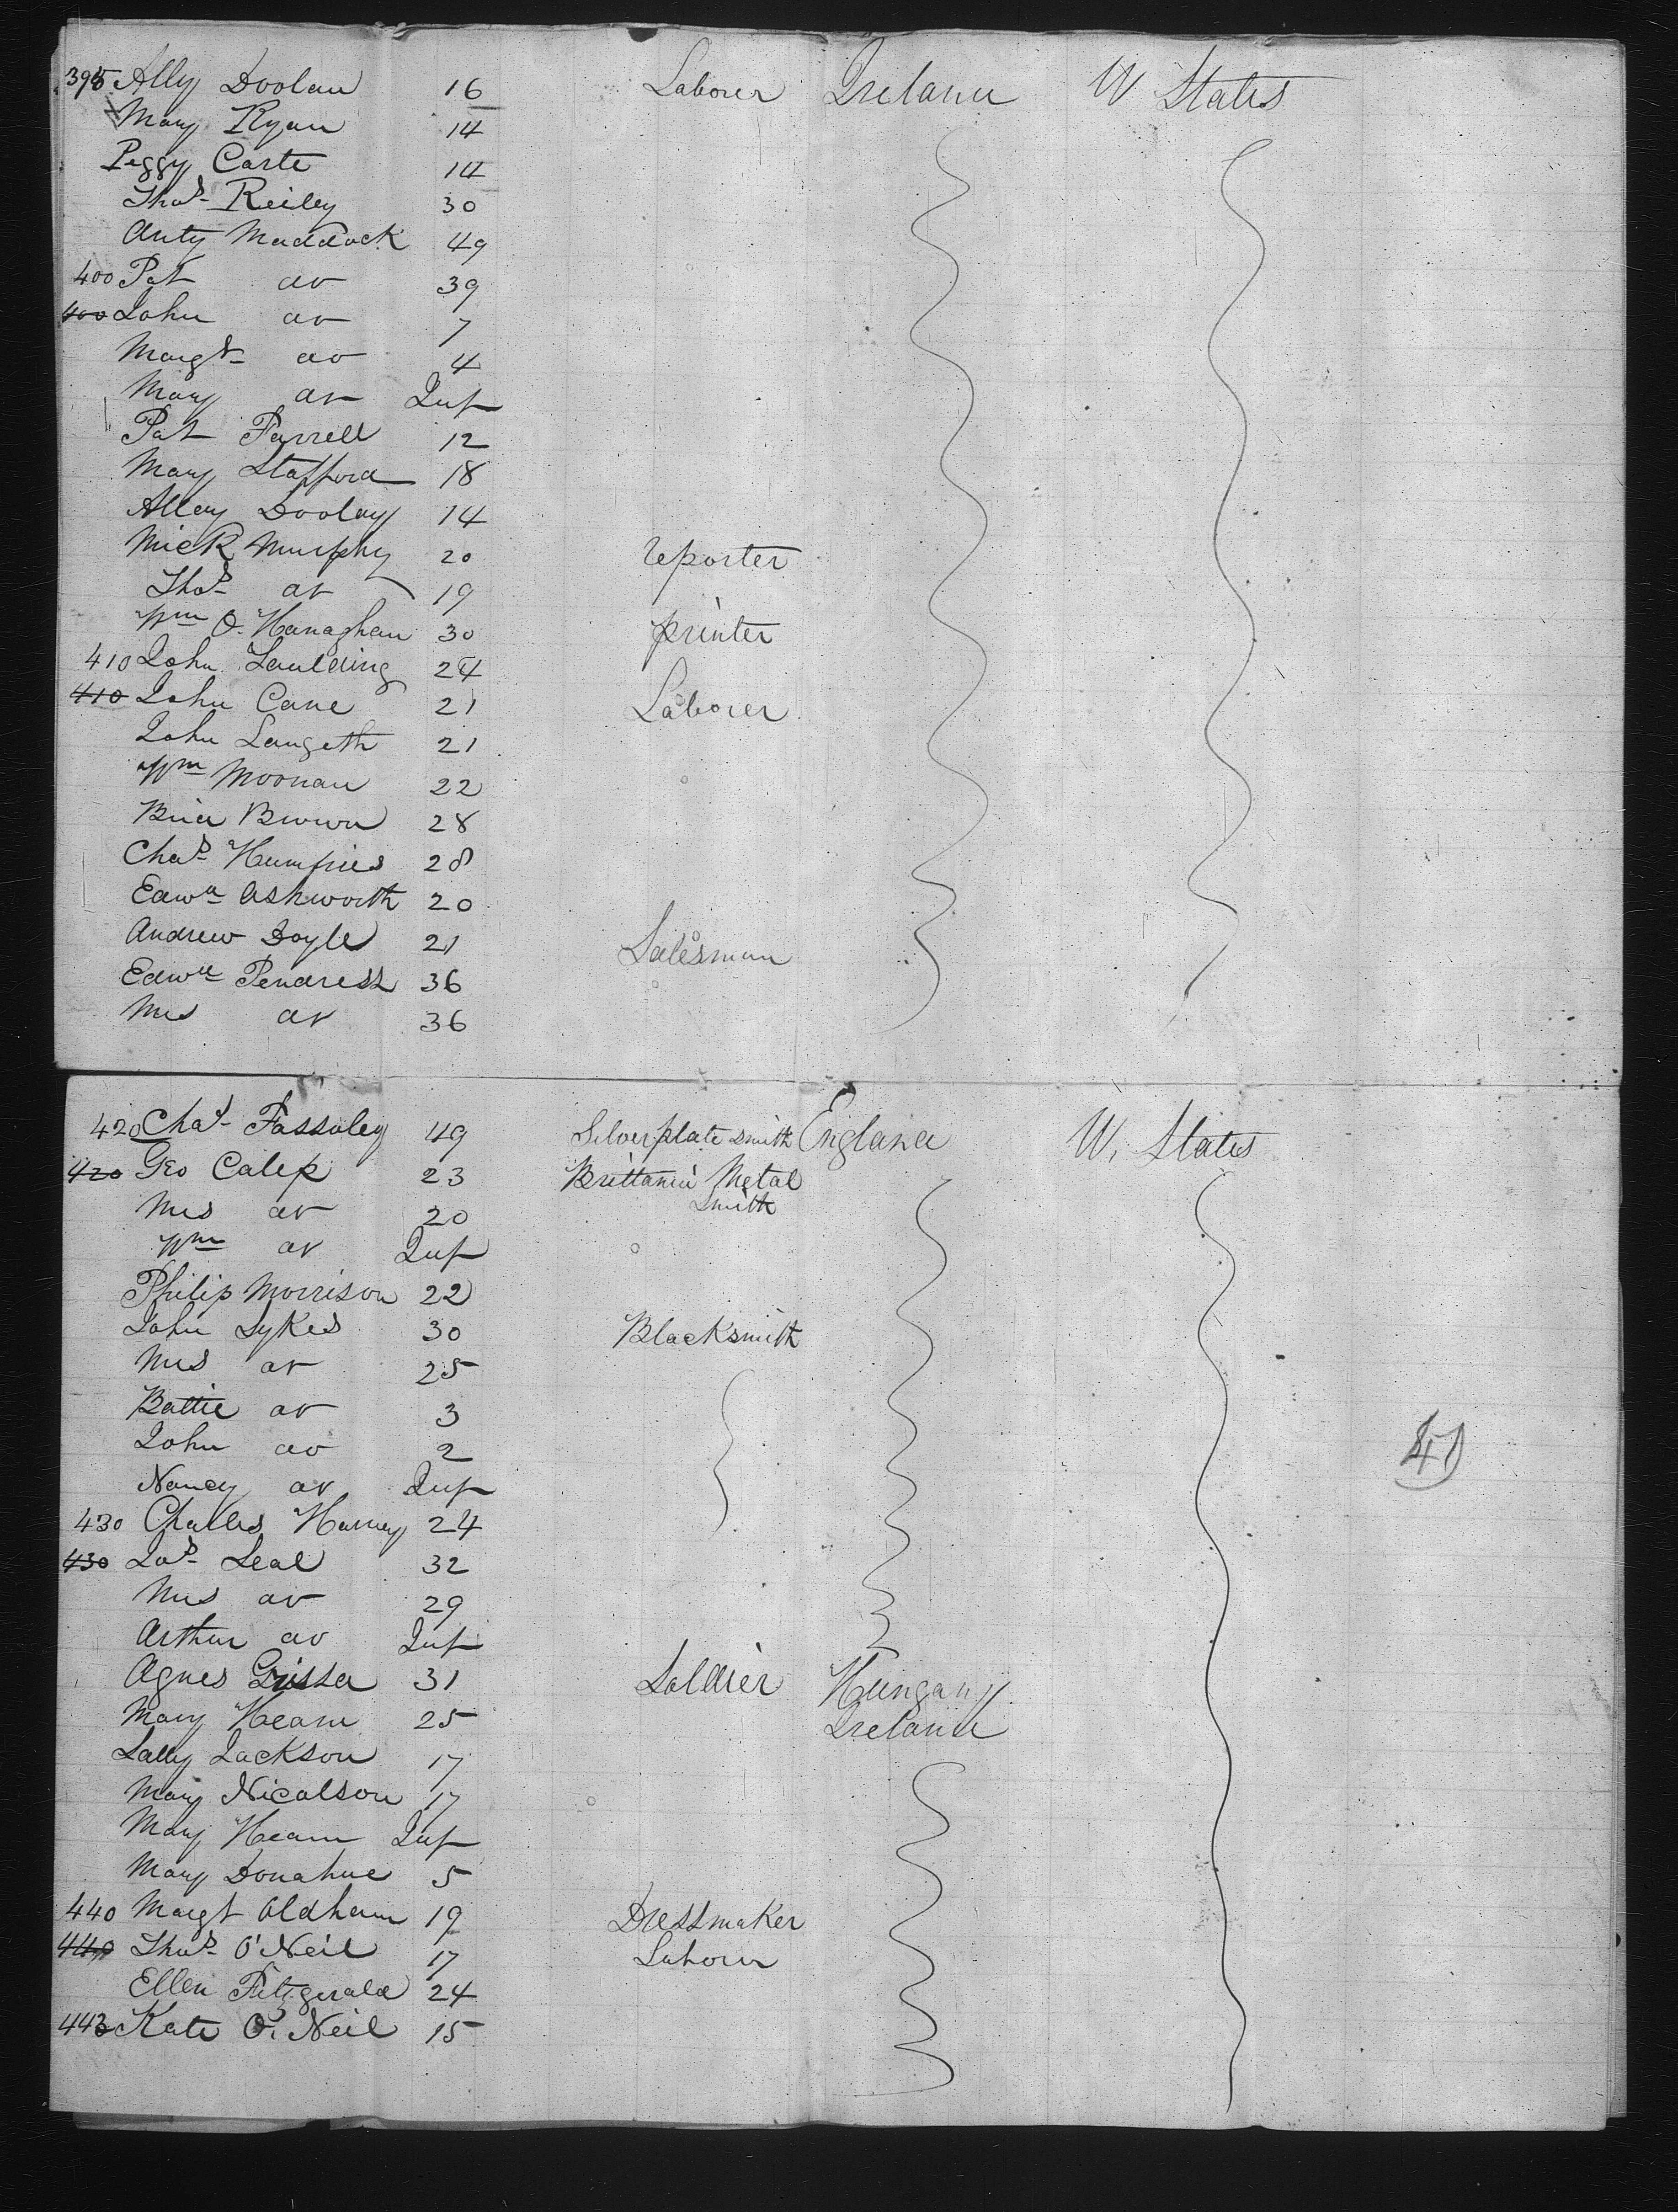 395 Ally Doolan 16 Laborer Ireland U States
Mary Ryan 14
Peggy Carte 14
Thos Reiley 30
Anty Maddock 49
400 Pat do 39
400 John do 7
Margt do 4
Mary do Inf
Pat Farrell 12
Mary Stafford 18
Alley Doolay 14
Mick Murphy 20 reporter
Thos do 19
Wm O. Hanaghan 30 printer
410 John Laulding 24
410 John Cane 21 Laborer
John Langeth 21
Wm Moonan 22
Brown 28
Chas Humpries 28
Edwd Ashworth 20
Andrew Doyle 21 Salesman
Edwd Pendress 36
Mrs do 36
420 Chas Fassoley 49 Silver plate smith England U. States
420 Geo Calep 23 Brittania Metal
Smith
Mrs do 20
Wm do Inf
Philip Morrison 22
John Sykes 30 Blacksmith
Mrs do 25
Battie do 3
John do 2
Nancy do Inf
41
430 Charles Harney 24
430 Jos Seal 32
Mrs do 29
Arthur do Inf
Agnes 31 Soldier Hungary
Mary Hearn 25 Ireland
Sally Jackson 17
Mary Nicolson 17
Mary Hearn Inf
Mary Donahue 5
440 Margt Oldham 19 Dressmaker
440 Thos O'Neil 17 Laborer
Ellen Fitzgerald 24
443 Kate O. Neil 15